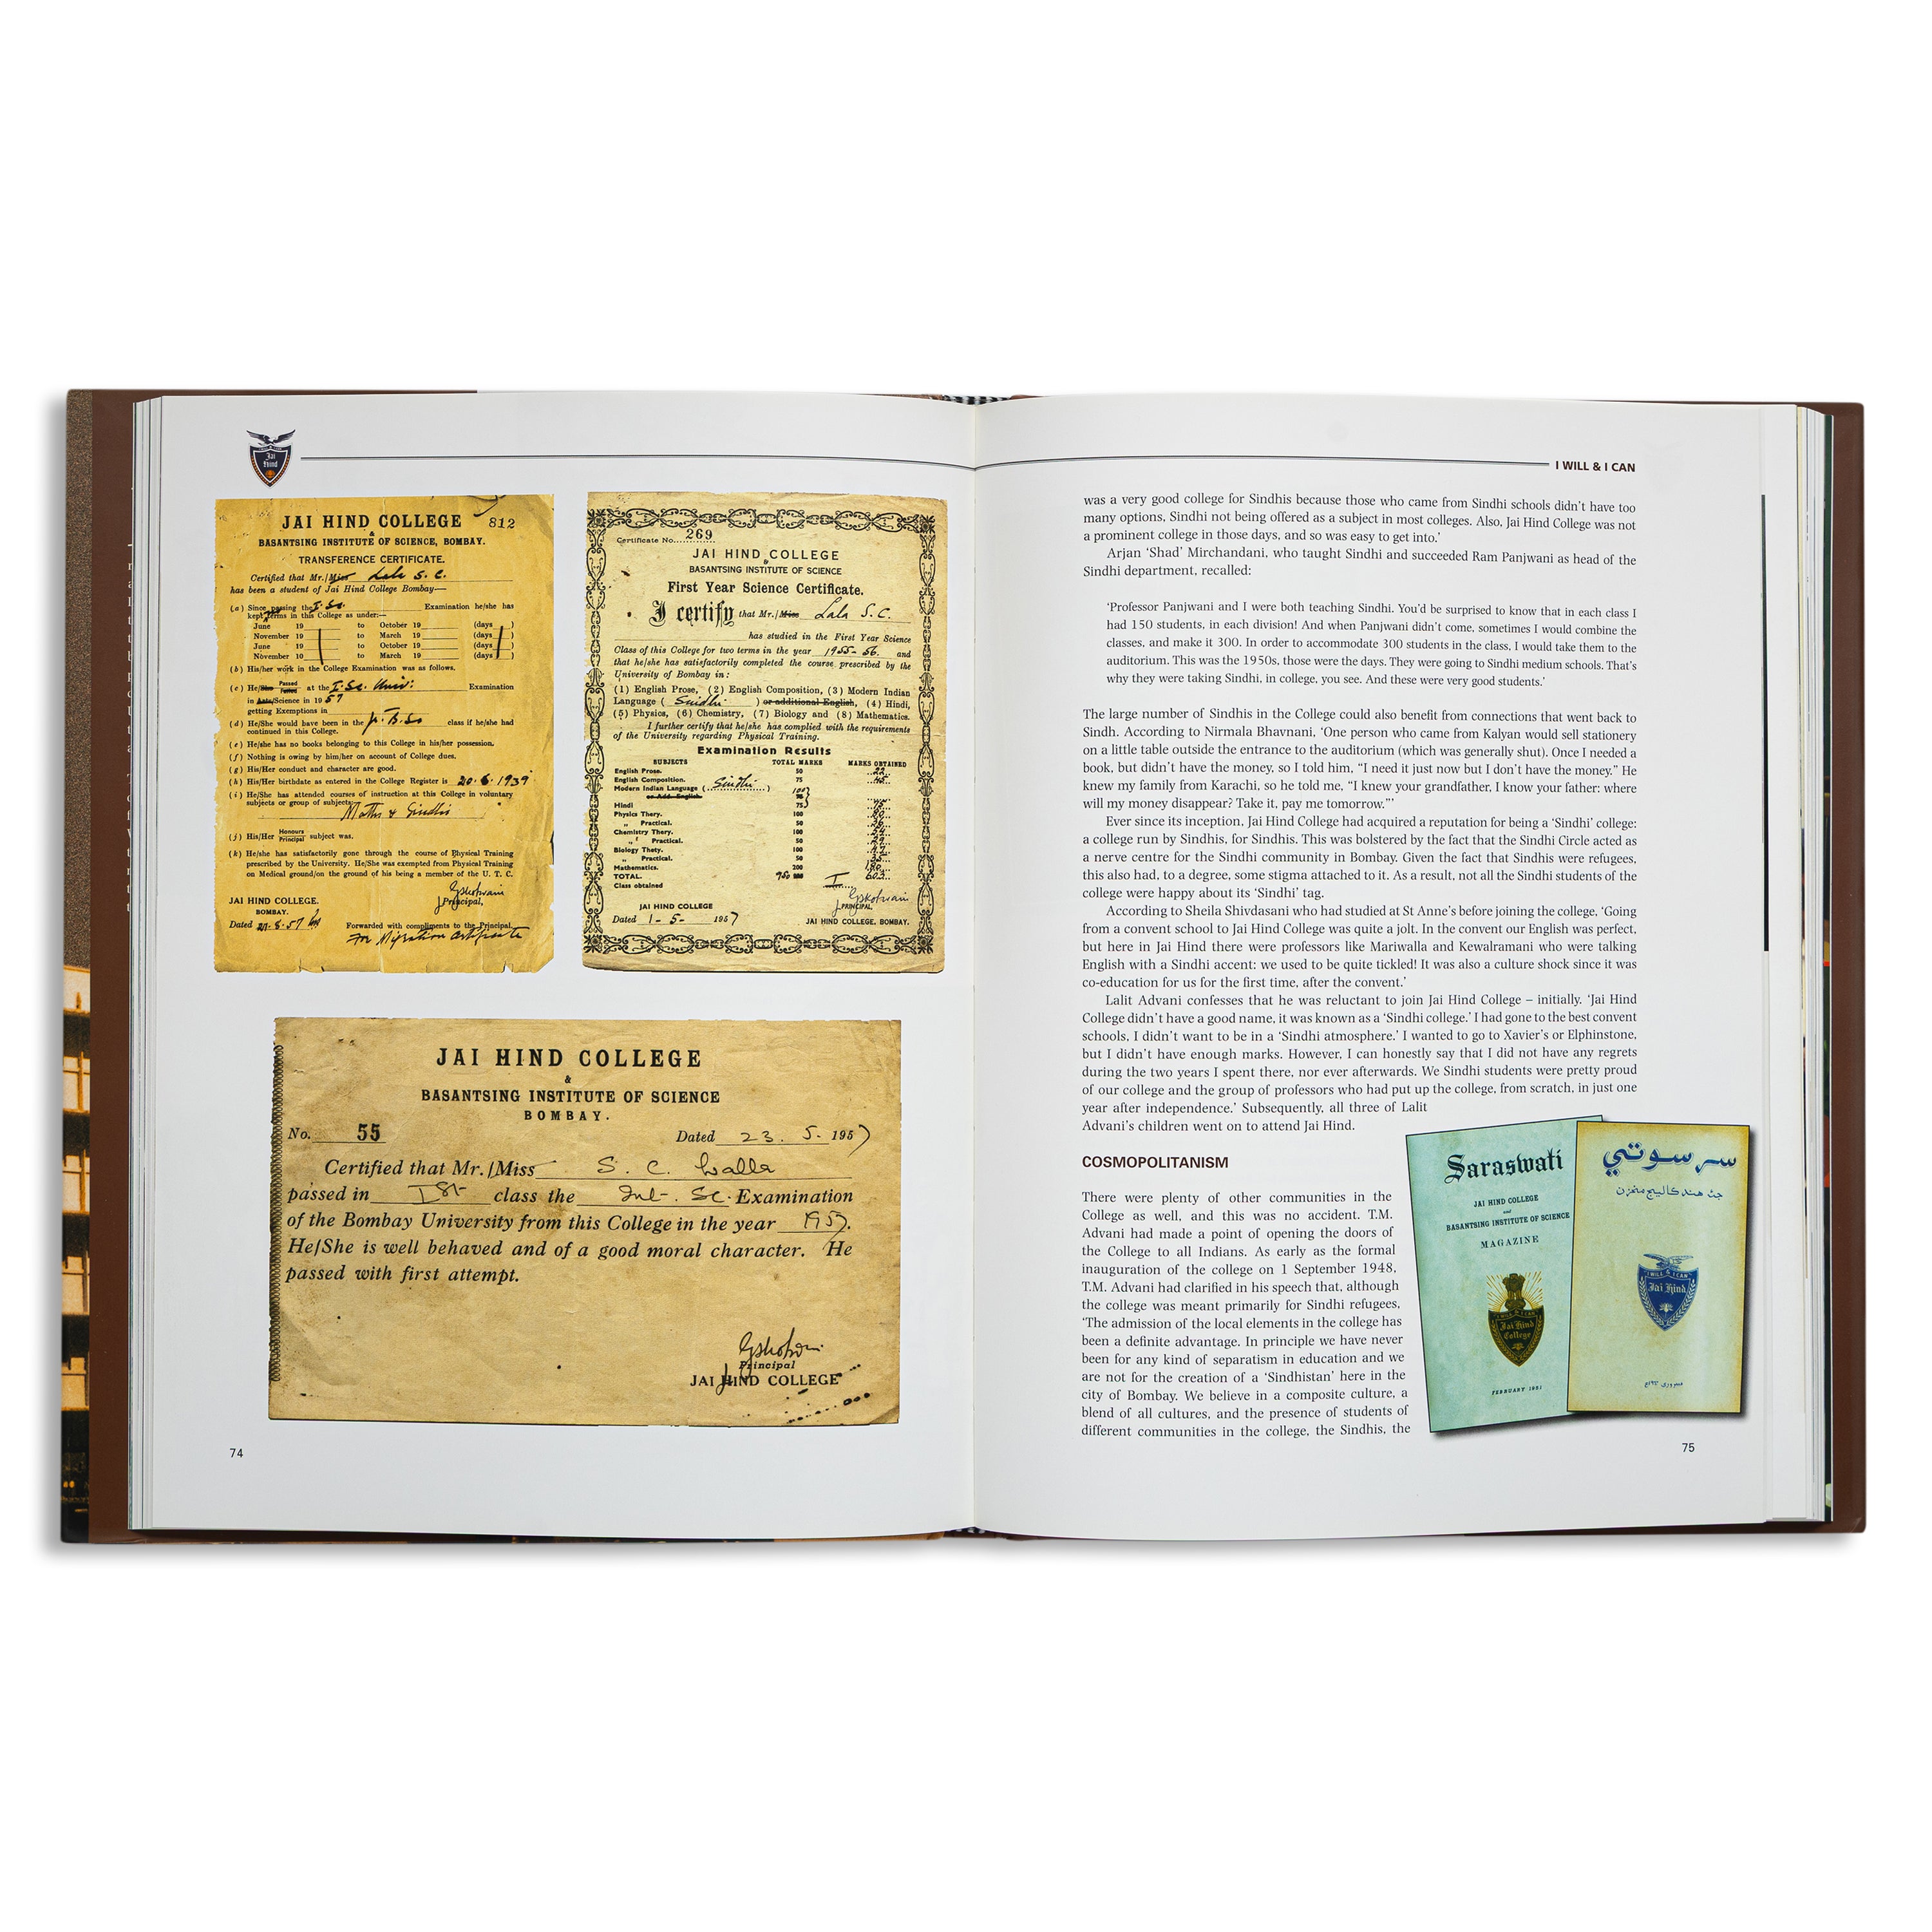 Jai Hind
JAI HIND COLLEGE 812
&
BASANTSING INSTITUTE OF SCIENCE, BOMBAY.
TRANSFERENCE CERTIFICATE.
Certified that Mr./Miss Lala S. C.
has been a student of Jai Hind College Bombay—
(a) Since passing the I.Sc. Examination he/she has
kept terms in this College as under:—
June 19 to October 19 (days )
November 19 to March 19 (days )
June 19 to October 19 (days )
November 10 to March 19 (days )
(b) His/her work in the College Examination was as follows.
(c) He/She Passed Failed at the I.Sc. Univ: Examination
in Arts/Science in 1957
getting Exemptions in
(d) He/She would have been in the Jr. B.Sc class if he/she had
continued in this College.
(e) He/she has no books belonging to this College in his/her possession.
(f) Nothing is owing by him/her on account of College dues.
(g) His/Her conduct and character are good.
(h) His/Her birthdate as entered in the College Register is 20.6.1939
(i) He/She has attended courses of instruction at this College in voluntary
subjects or group of subjects: Maths & Sindhi
(j) His/Her Honours Principal subject was.
(k) He/she has satisfactorily gone through the course of Physical Training
prescribed by the University. He/She was exempted from Physical Training
on Medical ground/on the ground of his being a member of the U. T. C.
JAI HIND COLLEGE. Principal,
BOMBAY.
Dated Forwarded with compliments to the Principal,
For Migration Certificate
Certificate No. 269
JAI HIND COLLEGE
&
BASANTSING INSTITUTE OF SCIENCE
First Year Science Certificate.
I certify that Mr./Miss Lala S.C.
has studied in the First Year Science
Class of this College for two terms in the year 1955-56. and
that he/she has satisfactorily completed the course prescribed by the
University of Bombay in:
(1) English Prose, (2) English Composition, (3) Modern Indian
Language ( Sindhi ) or additional English, (4) Hindi,
(5) Physics, (6) Chemistry, (7) Biology and (8) Mathematics.
I further certify that he/she has complied with the requirements
of the University regarding Physical Training.
Examination Results
SUBJECTS TOTAL MARKS MARKS OBTAINED
English Prose. 50
English Composition. 75
Modern Indian Language ( Sindhi ) 100
or Add. English
Hindi 75
Physics Thery. 100
„ Practical. 50
Chemistry Thery. 100
„ Practical. 50
Biology Thety. 100
„ Practical. 50
Mathematics. 200
TOTAL. 750
Class obtained I
JAI HIND COLLEGE PRINCIPAL,
Dated 1-5-1957 JAI HIND COLLEGE, BOMBAY.
JAI HIND COLLEGE
&
BASANTSING INSTITUTE OF SCIENCE
BOMBAY.
No. 55 Dated 23. 5. 1957
Certified that Mr./Miss S. C. Lalla
passed in Ist class the Int. Sc. Examination
of the Bombay University from this College in the year 1957.
He/She is well behaved and of a good moral character. He
passed with first attempt.
Principal
JAI HIND COLLEGE
74
I WILL & I CAN
was a very good college for Sindhis because those who came from Sindhi schools didn’t have too
many options, Sindhi not being offered as a subject in most colleges. Also, Jai Hind College was not
a prominent college in those days, and so was easy to get into.’
Arjan ‘Shad’ Mirchandani, who taught Sindhi and succeeded Ram Panjwani as head of the
Sindhi department, recalled:
‘Professor Panjwani and I were both teaching Sindhi. You’d be surprised to know that in each class I
had 150 students, in each division! And when Panjwani didn’t come, sometimes I would combine the
classes, and make it 300. In order to accommodate 300 students in the class, I would take them to the
auditorium. This was the 1950s, those were the days. They were going to Sindhi medium schools. That’s
why they were taking Sindhi, in college, you see. And these were very good students.’
The large number of Sindhis in the College could also benefit from connections that went back to
Sindh. According to Nirmala Bhavnani, ‘One person who came from Kalyan would sell stationery
on a little table outside the entrance to the auditorium (which was generally shut). Once I needed a
book, but didn’t have the money, so I told him, “I need it just now but I don’t have the money.” He
knew my family from Karachi, so he told me, “I knew your grandfather, I know your father: where
will my money disappear? Take it, pay me tomorrow.”’
Ever since its inception, Jai Hind College had acquired a reputation for being a ‘Sindhi’ college:
a college run by Sindhis, for Sindhis. This was bolstered by the fact that the Sindhi Circle acted as
a nerve centre for the Sindhi community in Bombay. Given the fact that Sindhis were refugees,
this also had, to a degree, some stigma attached to it. As a result, not all the Sindhi students of the
college were happy about its ‘Sindhi’ tag.
According to Sheila Shivdasani who had studied at St Anne’s before joining the college, ‘Going
from a convent school to Jai Hind College was quite a jolt. In the convent our English was perfect,
but here in Jai Hind there were professors like Mariwalla and Kewalramani who were talking
English with a Sindhi accent: we used to be quite tickled! It was also a culture shock since it was
co-education for us for the first time, after the convent.’
Lalit Advani confesses that he was reluctant to join Jai Hind College – initially. ‘Jai Hind
College didn’t have a good name, it was known as a ‘Sindhi college.’ I had gone to the best convent
schools, I didn’t want to be in a ‘Sindhi atmosphere.’ I wanted to go to Xavier’s or Elphinstone,
but I didn’t have enough marks. However, I can honestly say that I did not have any regrets
during the two years I spent there, nor ever afterwards. We Sindhi students were pretty proud
of our college and the group of professors who had put up the college, from scratch, in just one
year after independence.’ Subsequently, all three of Lalit
Advani’s children went on to attend Jai Hind.
COSMOPOLITANISM
There were plenty of other communities in the
College as well, and this was no accident. T.M.
Advani had made a point of opening the doors of
the College to all Indians. As early as the formal
inauguration of the college on 1 September 1948,
T.M. Advani had clarified in his speech that, although
the college was meant primarily for Sindhi refugees,
‘The admission of the local elements in the college has
been a definite advantage. In principle we have never
been for any kind of separatism in education and we
are not for the creation of a ‘Sindhistan’ here in the
city of Bombay. We believe in a composite culture, a
blend of all cultures, and the presence of students of
different communities in the college, the Sindhis, the
Saraswati
JAI HIND COLLEGE
and
BASANTSING INSTITUTE OF SCIENCE
MAGAZINE
I WILL & I CAN
Jai Hind
College
FEBRUARY 1951
سرسوتي
جئه هند ڪاليج مخزن
I WILL & I CAN
Jai Hind
75